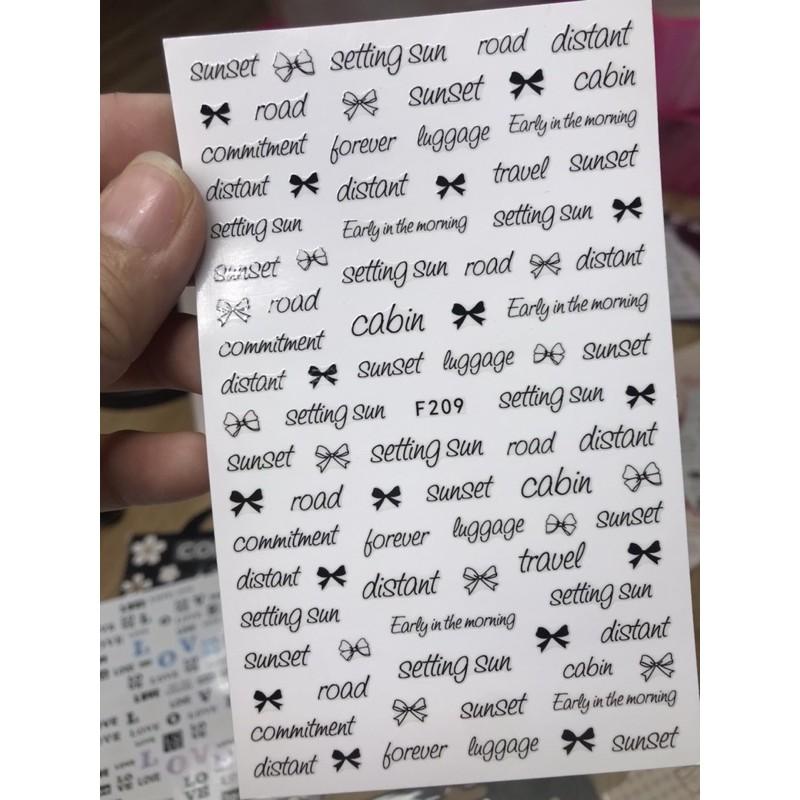 sunset setting sun road distant
road sunset cabin
commitment forever luggage Early in the morning
distant distant travel sunset
setting sun Early in the morning setting sun
sunset setting sun road distant
road cabin Early in the morning
commitment
distant sunset luggage sunset
setting sun F209 setting sun
sunset setting sun road distant
road sunset cabin
commitment forever luggage sunset
distant distant travel
setting sun Early in the morning setting sun
sunset setting sun distant
road cabin
commitment sunset Early in the morning
distant forever luggage sunset